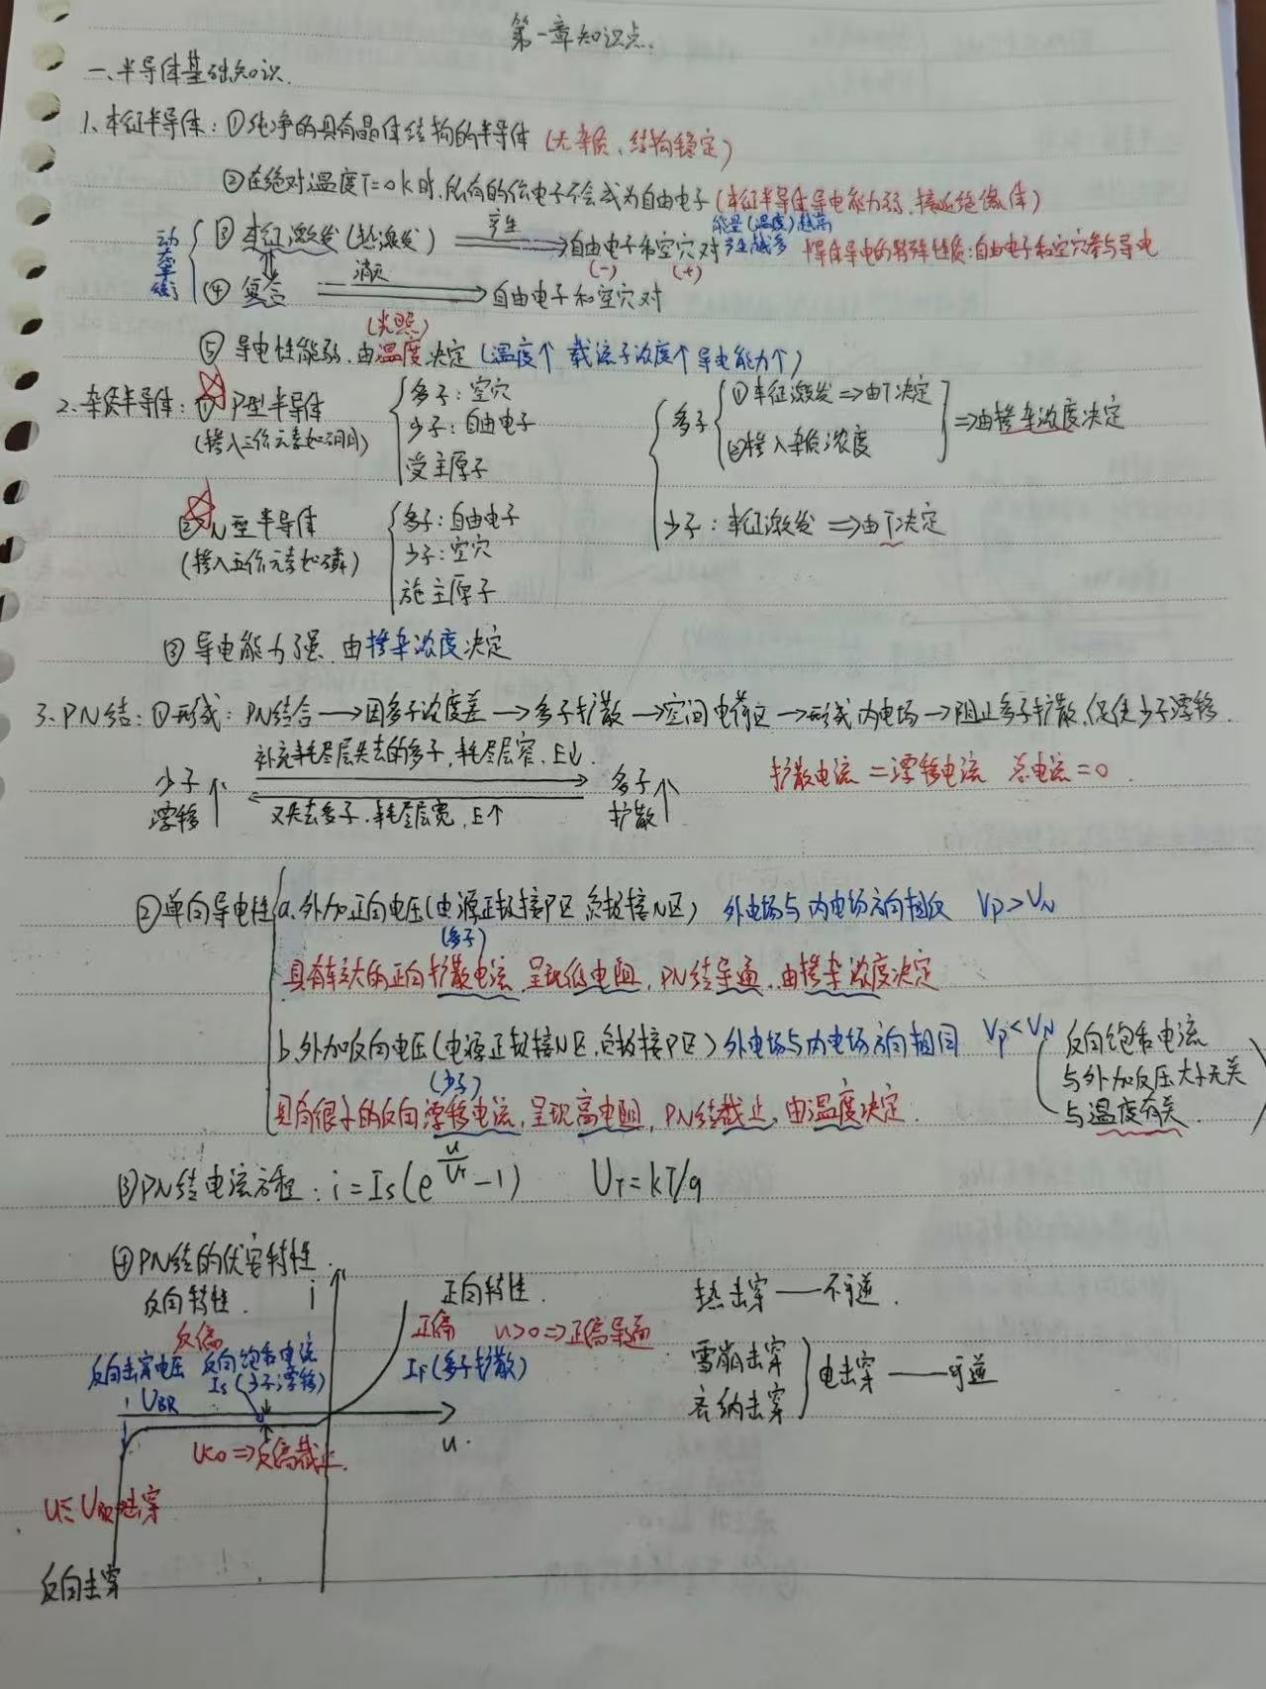 第一章知识点.
一、半导体基础知识.
1、本征半导体：①纯净的具有晶体结构的半导体（无杂质、结构稳定）
②在绝对温度T=0k时,所有的价电子不会成为自由电子（本征半导体导电能力弱,接近绝缘体）
动态平衡
③ 本征激发（热激发） 产生 自由电子和空穴对 能量（温度）越高 产生越多 半导体导电的特殊性质:自由电子和空穴参与导电
(-) (+)
④ 复合 消灭 自由电子和空穴对
（光照）
⑤ 导电性能弱.由温度决定（温度↑ 载流子浓度↑ 导电能力↑）
2.杂质半导体：① P型半导体
（掺入三价元素如硼）
多子：空穴
少子：自由电子
受主原子
多子 ①本征激发⇒由T决定
②掺入杂质浓度
⇒由掺杂浓度决定
少子：本征激发⇒由T决定
②N型半导体
（掺入五价元素如磷）
多子：自由电子
少子：空穴
施主原子
③ 导电能力强 由掺杂浓度决定
3.PN结：①形成：PN结合→因多子浓度差→多子扩散→空间电荷区→形成内电场→阻止多子扩散,促使少子漂移.
少子漂移↑ 补充耗尽层失去的多子,耗尽层窄,E↓. 多子扩散↑
又失去多子.耗尽层宽,E↑
扩散电流=漂移电流 总电流=0.
②单向导电性 a.外加正向电压（电源正极接P区 负极接N区） 外电场与内电场方向相反 VP>VN
（多子）
具有较大的正向扩散电流,呈现低电阻,PN结导通,由掺杂浓度决定
b.外加反向电压（电源正极接N区,负极接P区）外电场与内电场方向相同 VP<VN
（少子）
具有很小的反向漂移电流,呈现高电阻,PN结截止,由温度决定.
反向饱和电流
与外加反压大小无关
与温度有关
③PN结电流方程：i=Is(e^(u/UT)-1) UT=kT/q
④PN结的伏安特性.
反向特性. i 正向特性.
反偏 正偏 u>0⇒正偏导通
反向击穿电压 UBR
反向饱和电流 Is（少子漂移）
IF（多子扩散）
u.
u<0⇒反偏截止.
U≤UBR击穿
反向击穿
热击穿——不可逆.
雪崩击穿
齐纳击穿
电击穿——可逆